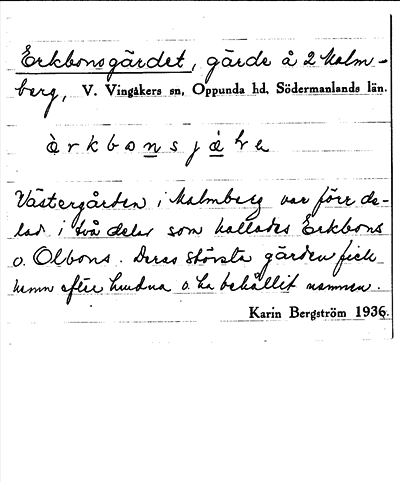 Erkbonsgärdet, gärde å 2 Malm-
berg, V. Vingåkers sn, Oppunda hd, Södermanlands län.
Västergården i Malmberg var förr de-
lad i två delar som kallades Erkbons
o. Olbons. Deras största gärden fick
namn efter husdna o. ha behållit namnen.
Karin Bergström 1936.